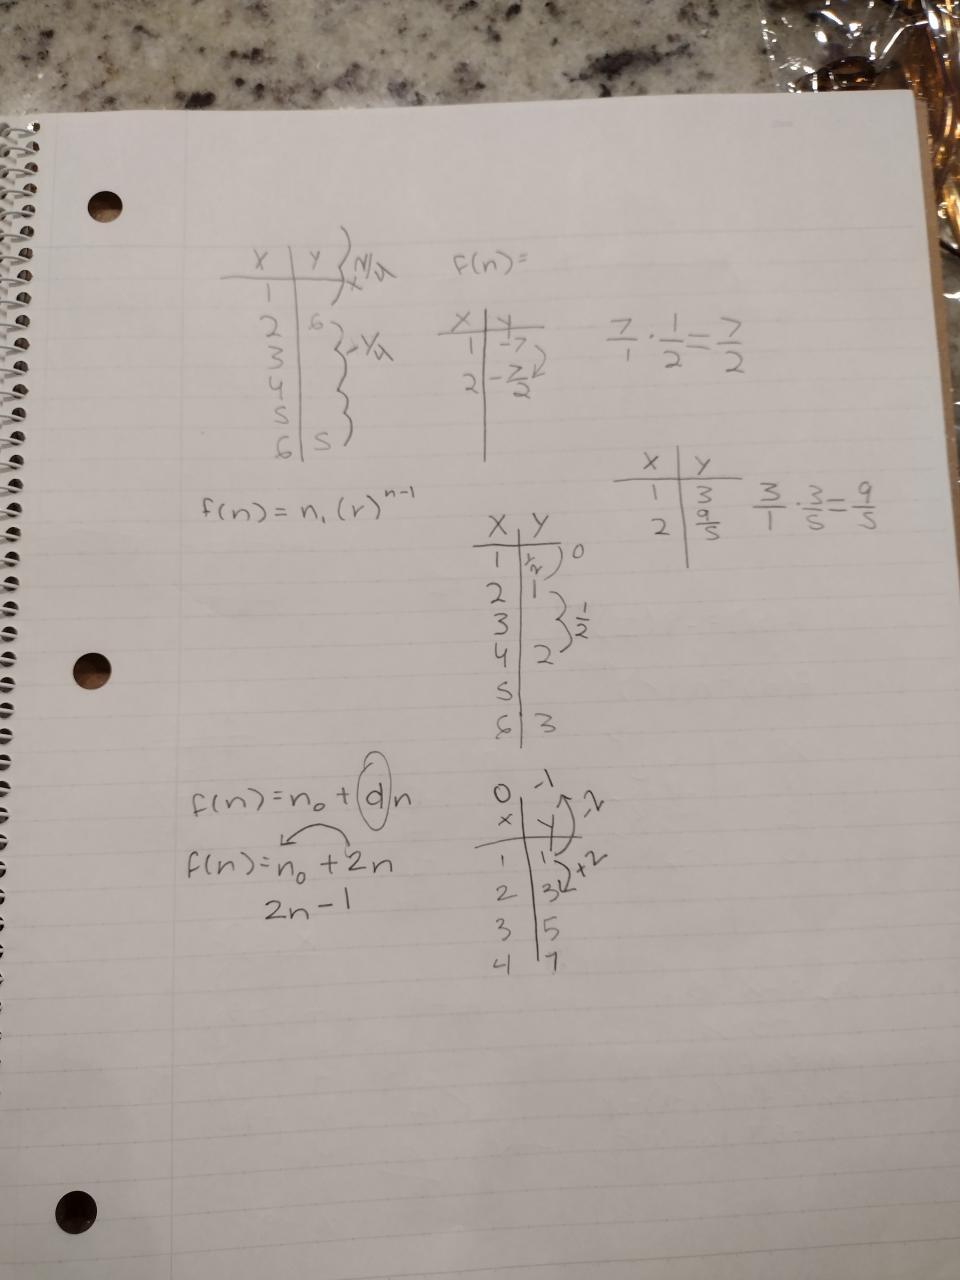 X | Y
1
2 | 6
3
4
5
6 | 5
f(n)=
X | Y
1 | -7
2 | -7/2
7/1 · 1/2 = 7/2
X | Y
1 | 3
2 | 9/5
3/1 · 3/5 = 9/5
f(n) = n₁ (r)ⁿ⁻¹
X | Y
1 | 1/2 ) 0
2 | 1
3 } 1/2
4 | 2
5
6 | 3
f(n)=n₀ + dn
f(n)=n₀ + 2n
2n - 1
0 -1
x | y
1 | 1 +2
2 | 3
3 | 5
4 | 7